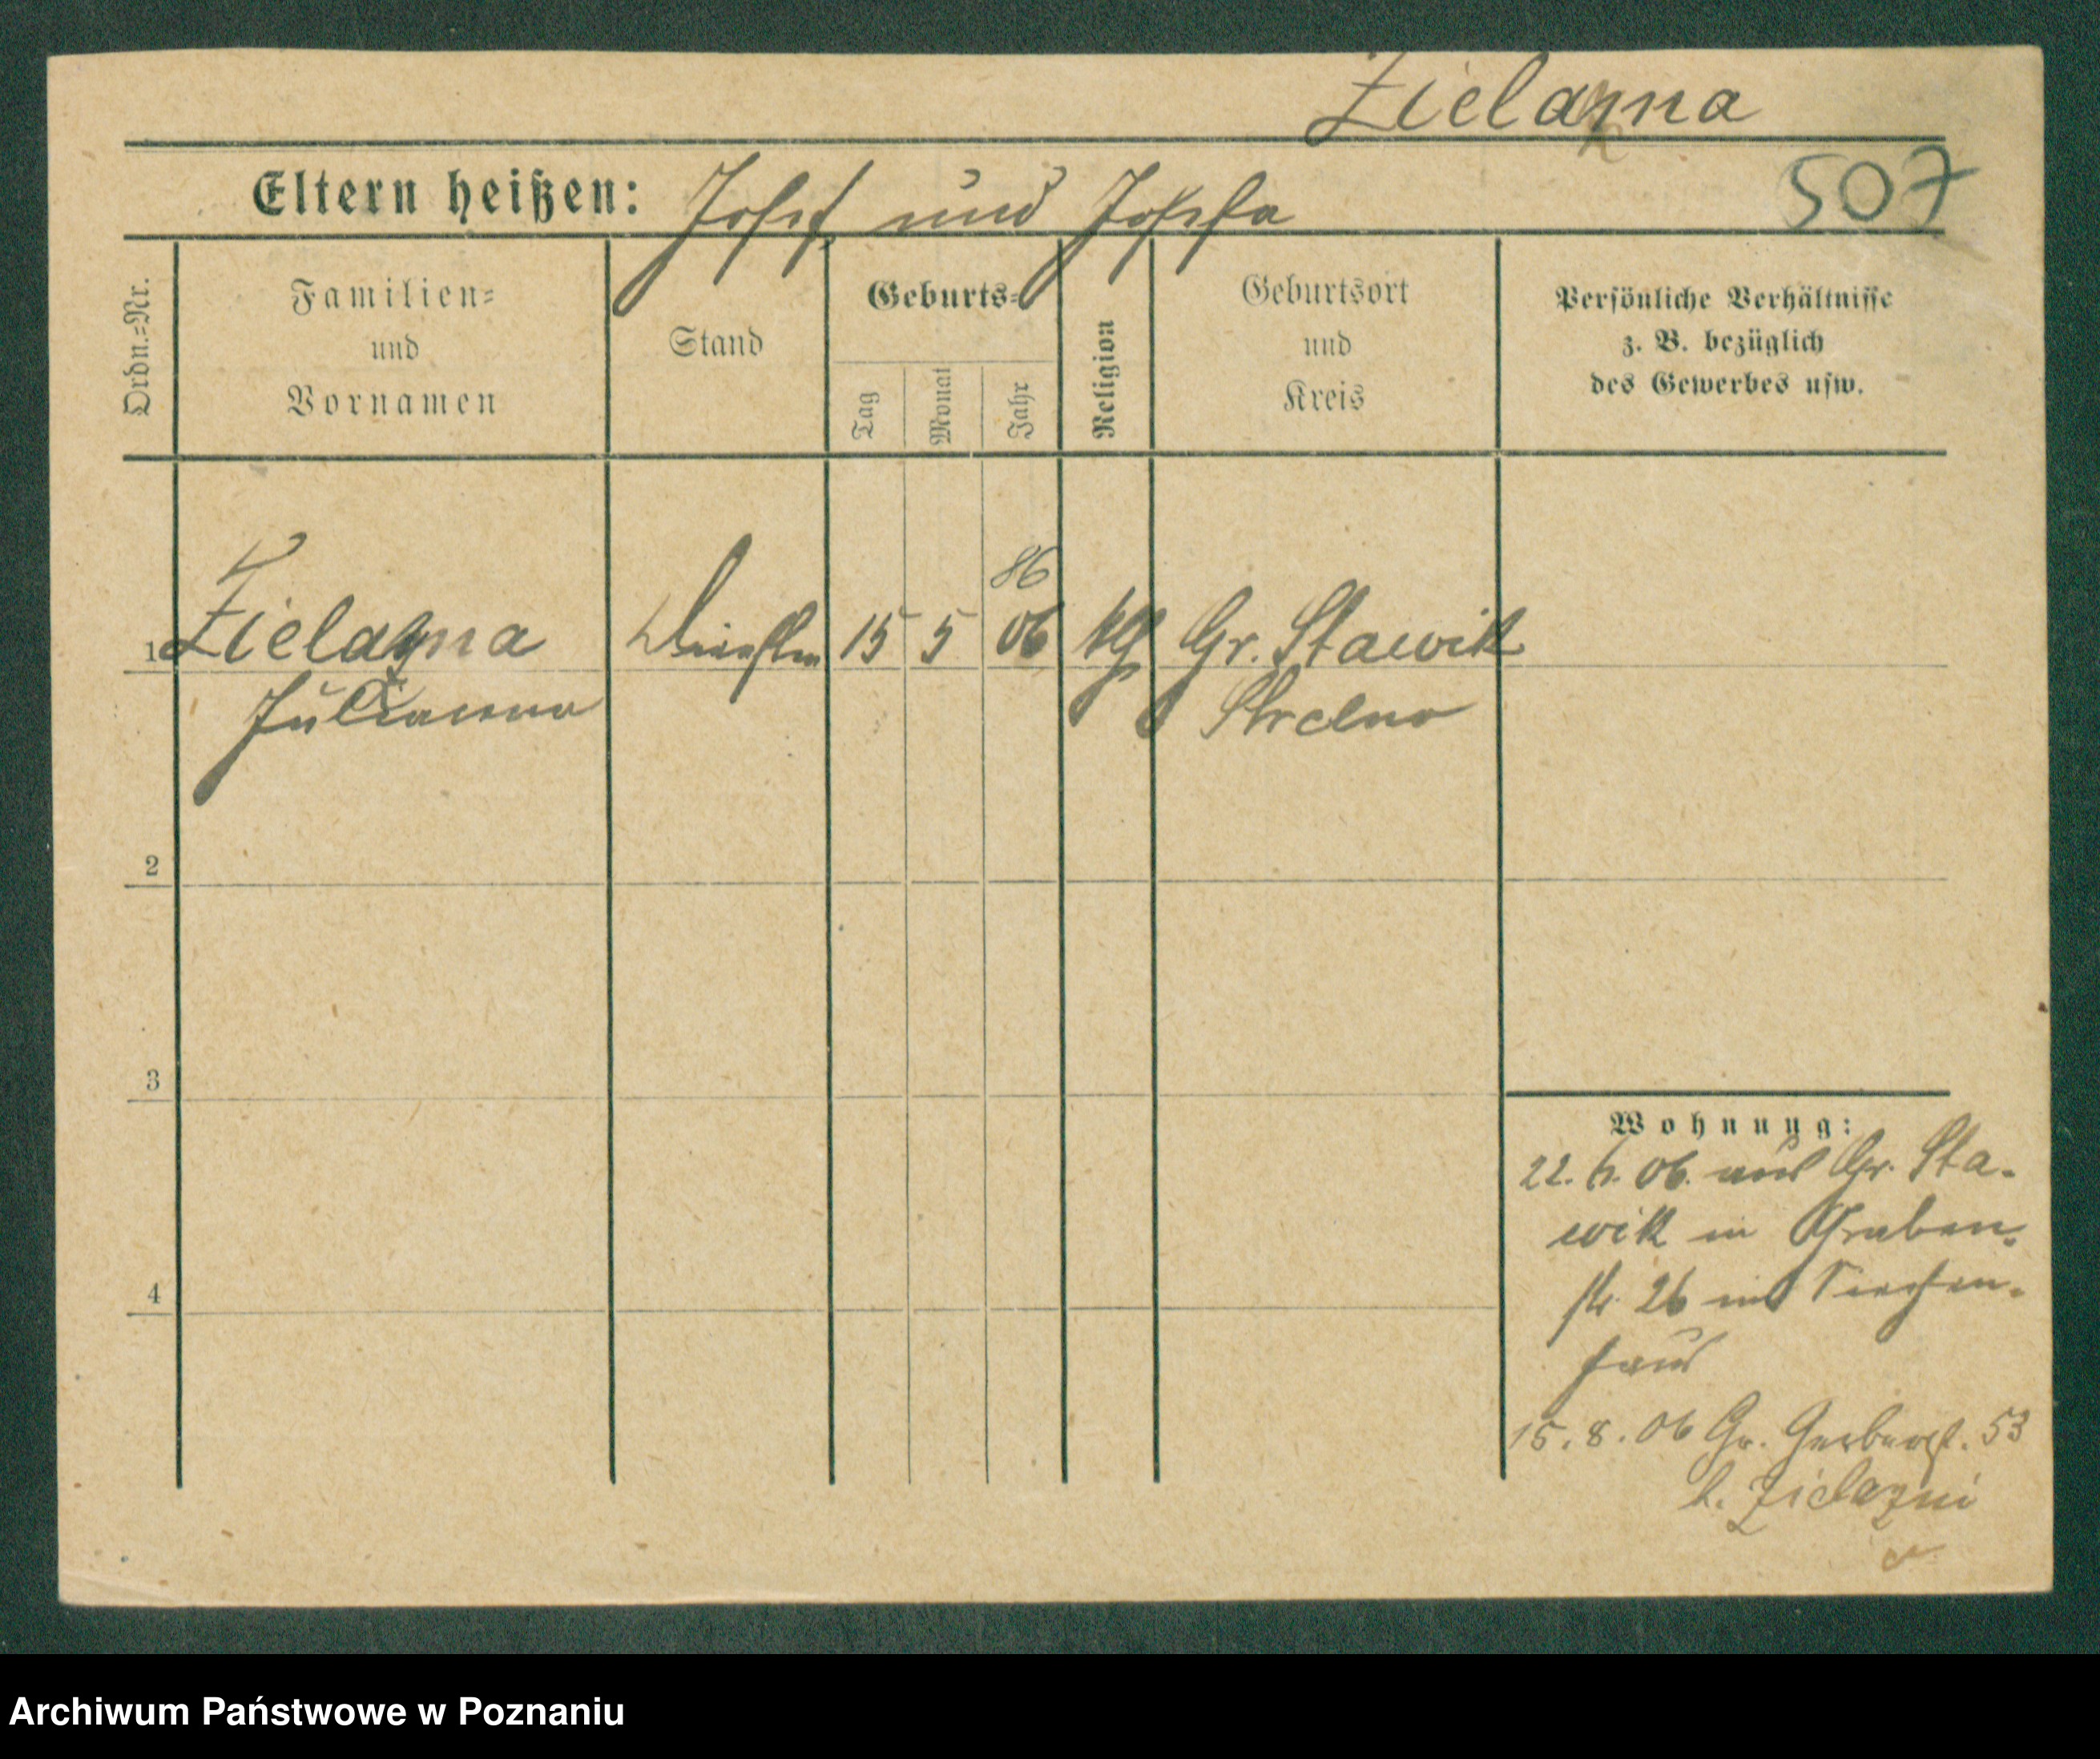 Zielazna
Eltern heißen: Josef und Josefa
507
Ordn.=Nr.
Familien=
und
Vornamen
Stand
Geburts=
Tag
Monat
Jahr
Religion
Geburtsort
und
Kreis
Persönliche Verhältnisse
z. B. bezüglich
des Gewerbes usw.
86
1 Zielazna 15 5 06 kg Gr. Stawik
Julianna Strelno
2
3
4
Wohnung:
22. 6. 06. aus Gr. Sta-
wik in Graben-
str. 26 ins Siechen-
haus
15. 8. 06 Gr. Gerberst. 53
b. Zielazni
Archiwum Państwowe w Poznaniu